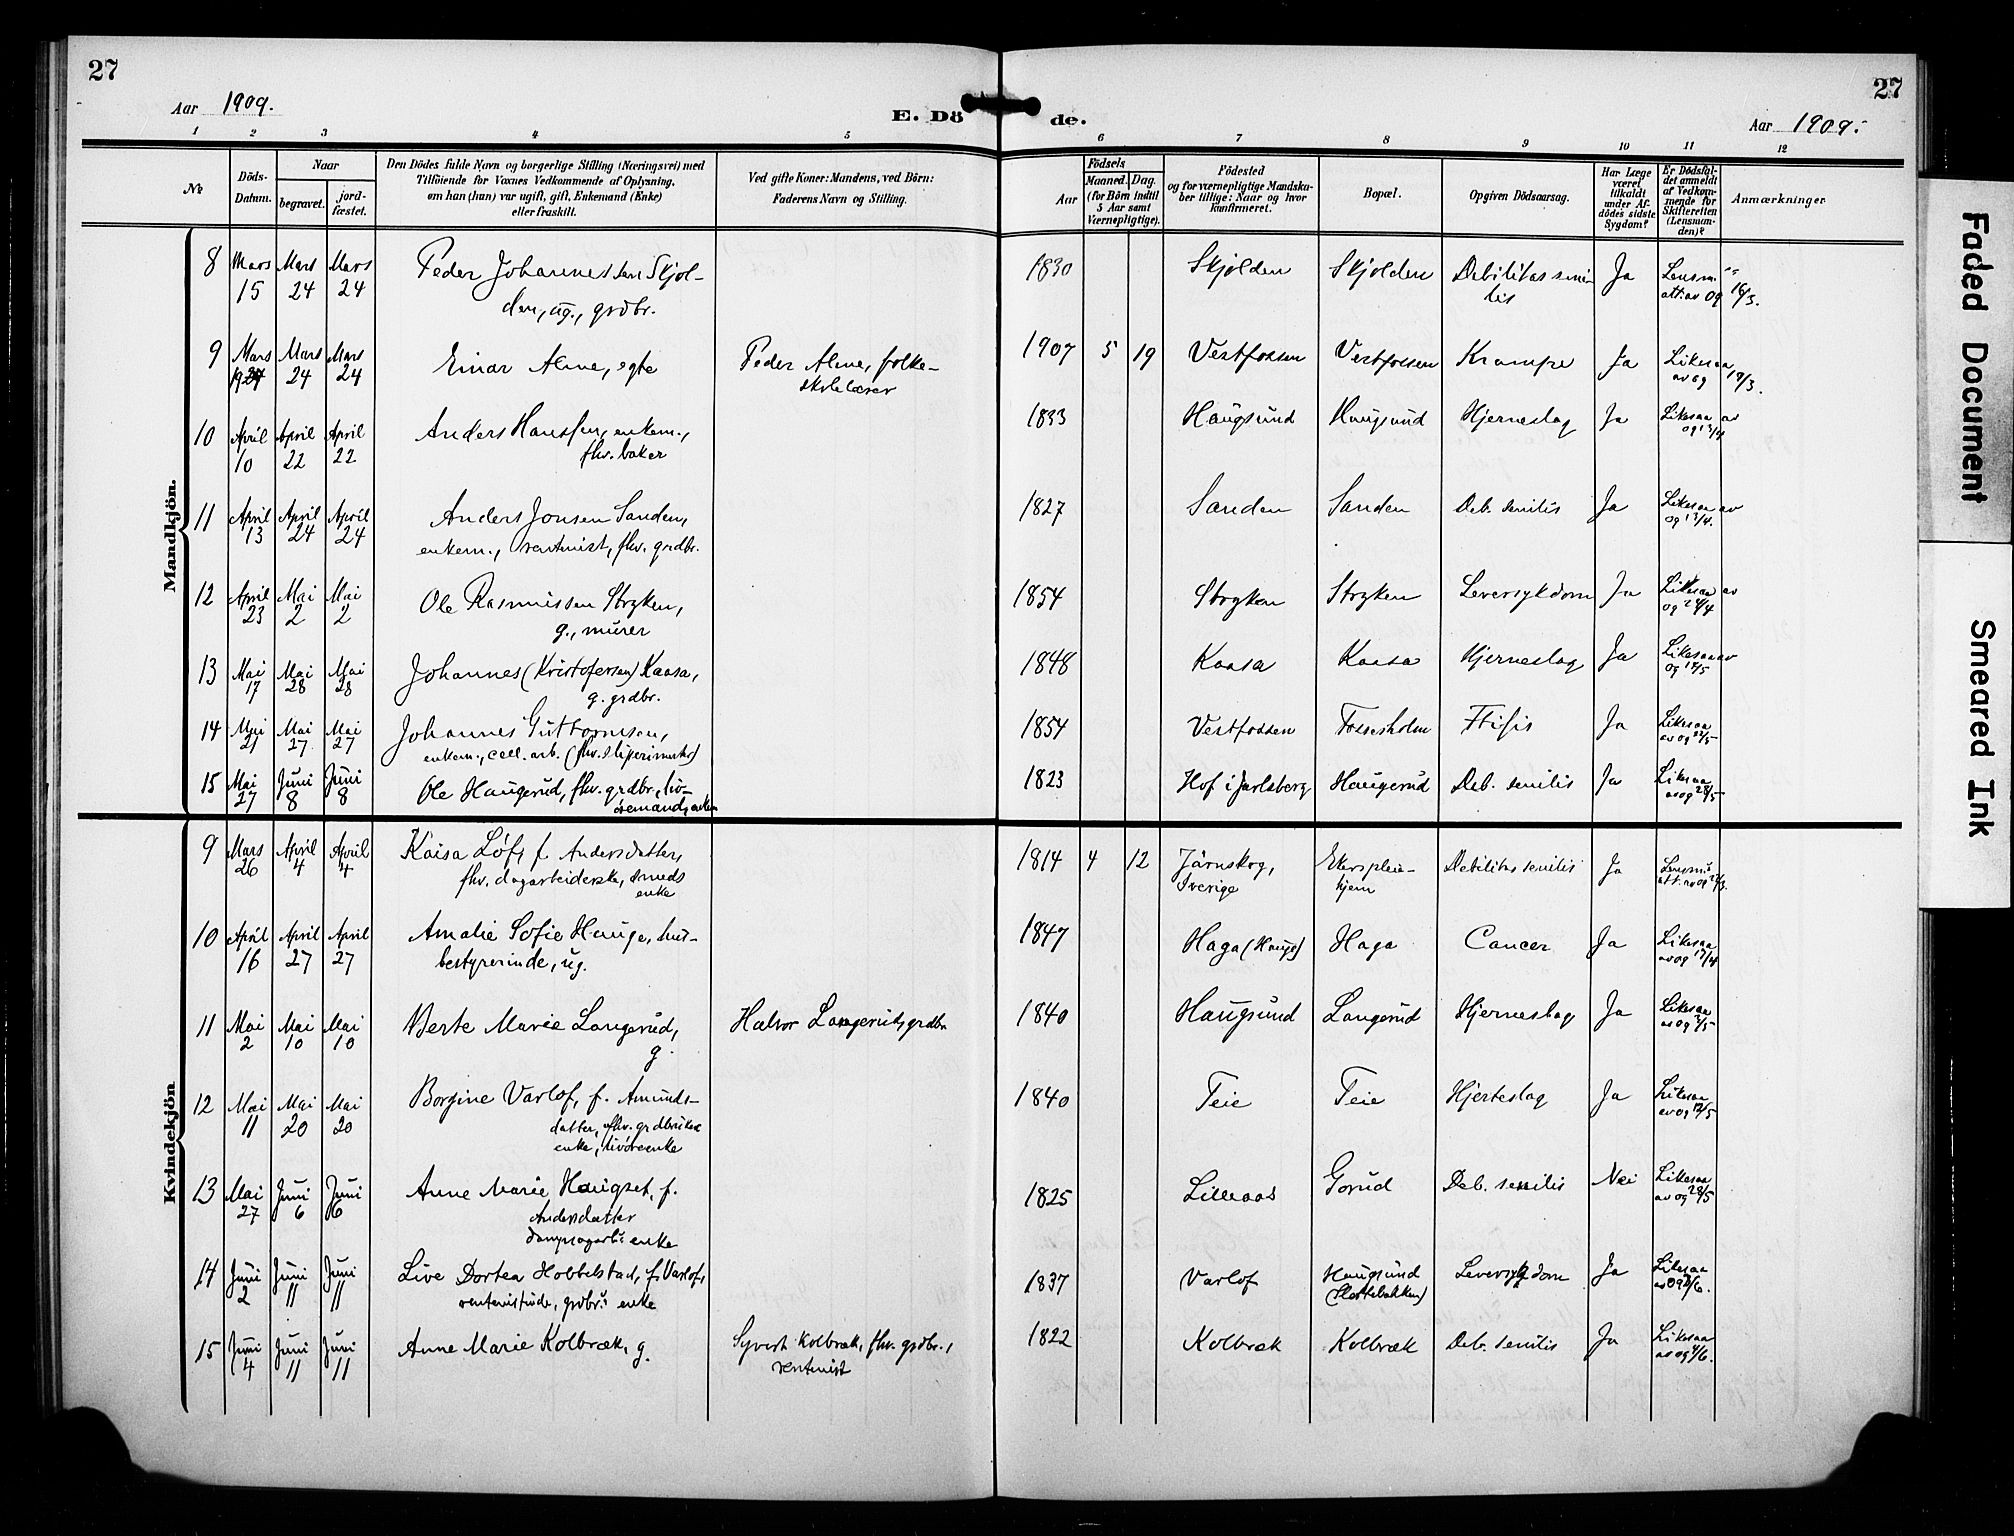 27
27
Aar 1909.
E. Dö de.
Aar 1909.
1 2 3 4 5 6 7 8 9 10 11 12
№
Döds-
Datum.
Naar
begravet.
jord-
fæstet.
Den Dödes fulde Navn og borgerlige Stilling (Næringsvei) med
Tilföiende for Voxnes Vedkommende af Oplysning,
om han (hun) var ugift, gift, Enkemand (Enke)
eller fraskilt.
Ved gifte Koner: Mandens, ved Börn:
Faderens Navn og Stilling.
Födsels
Aar
Maaned. Dag.
(for Börn indtil
5 Aar samt
Værnepligtige).
Födested
og for værnepligtige Mandska-
ber tillige: Naar og hvor
konfirmeret.
Bopæl.
Opgiven Dödsaarsag.
Har Læge
været
tilkaldt
under Af-
dödes sidste
Sygdom?
Er Dödsfal-
det anmeldt
af Vedkom-
mende for
Skifteretten
(Lensman-
den)?
Anmærkninger
Mandkjön.
8 Mars 15 Mars 24 Mars 24 Peder Johannessen Skjol-
den, ug., grdbr.
1830 Skjolden Skjolden Debilitas seni-
lis Ja Lensm.
att. av og 16/3.
9 Mars 19 Mars 24 Mars 24 Einar Alme, egte Peder Alme, folke-
skolelærer
1907 5 19 Vestfossen Vestfossen Krampe Ja Likesaa
av og 19/3.
10 April 10 April 22 April 22 Anders Hanssen, enkem.,
fhv. baker
1833 Haugsund Haugsund Hjerneslag Ja Likesaa av
og 13/4
11 April 13 April 24 April 24 Anders Jonsen Sanden,
enkem., rentenist, fhv. grdbr.
1827 Sanden Sanden Deb. senilis Ja Likesaa av
og 13/4.
12 April 23 Mai 2 Mai 2 Ole Rasmussen Stryken,
g., murer
1854 Stryken Stryken Leversykdom Ja Likesaa av
og 24/4
13 Mai 17 Mai 28 Mai 28 Johannes (Kristofersen) Kaasa,
g. grdbr.
1848 Kaasa Kaasa Hjerneslag Ja Likesaa av
og 17/5
14 Mai 21 Mai 27 Mai 27 Johannes Guttormsen,
enkem., cell. arb. (fhv. sliperimester)
1854 Vestfossen Fossesholm Ftisis Ja Likesaa
av og 22/5
15 Mai 27 Juni 8 Juni 8 Ole Haugerud, fhv. grdbr., liv-
øremand, enkem
1823 Hof i Jarlsberg Haugerud Deb. senilis Ja Likesaa
av og 28/5
Kvindekjön
9 Mars 26 April 4 April 4 Kaisa Löf, f. Andersdatter,
fhv. dagarbeiderske, smeds
enke
1814 4 12 Järnskog,
Sverige Ekers pleie-
hjem Debilitas senilis Ja Lensm.
att. av og 27/3.
10 April 16 April 27 April 27 Amalie Sofie Hauge, hus-
bestyrerinde, ug.
1847 Haga (Hauge) Haga Cancer Ja Likesaa
av og 17/4
11 Mai 2 Mai 10 Mai 10 Berte Marie Langerud,
g. Halvor Langerud, grdbr.
1840 Haugsund Langerud Hjerneslag Ja Likesaa
av og 3/5
12 Mai 11 Mai 20 Mai 20 Borgine Varlo, f. Amunds-
datter, fhv. grdbrukers
enke, livøreenke
1840 Teie Teie Hjerteslag Ja Likesaa
av og 12/5
13 Mai 27 Juni 6 Juni 6 Anne Marie Haugset, f.
Andersdatter
enke
1825 Lilleaas Gorud Deb. senilis Nei Likesaa
av og 28/5
14 Juni 2 Juni 11 Juni 11 Live Dortea Hobbelstad, f. Varlo,
rentenistinde, grdbr.s enke
1837 Varlo Haugsund
Leversykdom Ja Likesaa
av og /6.
15 Juni 4 Juni 11 Juni 11 Anne Marie Kolbræk, g. Syvert Kolbræk, fhv. grdbr.,
rentenist
1822 Kolbræk Kolbræk Deb. senilis Ja Likesaa
av og 4/6.
Faded Document
Smeared Ink